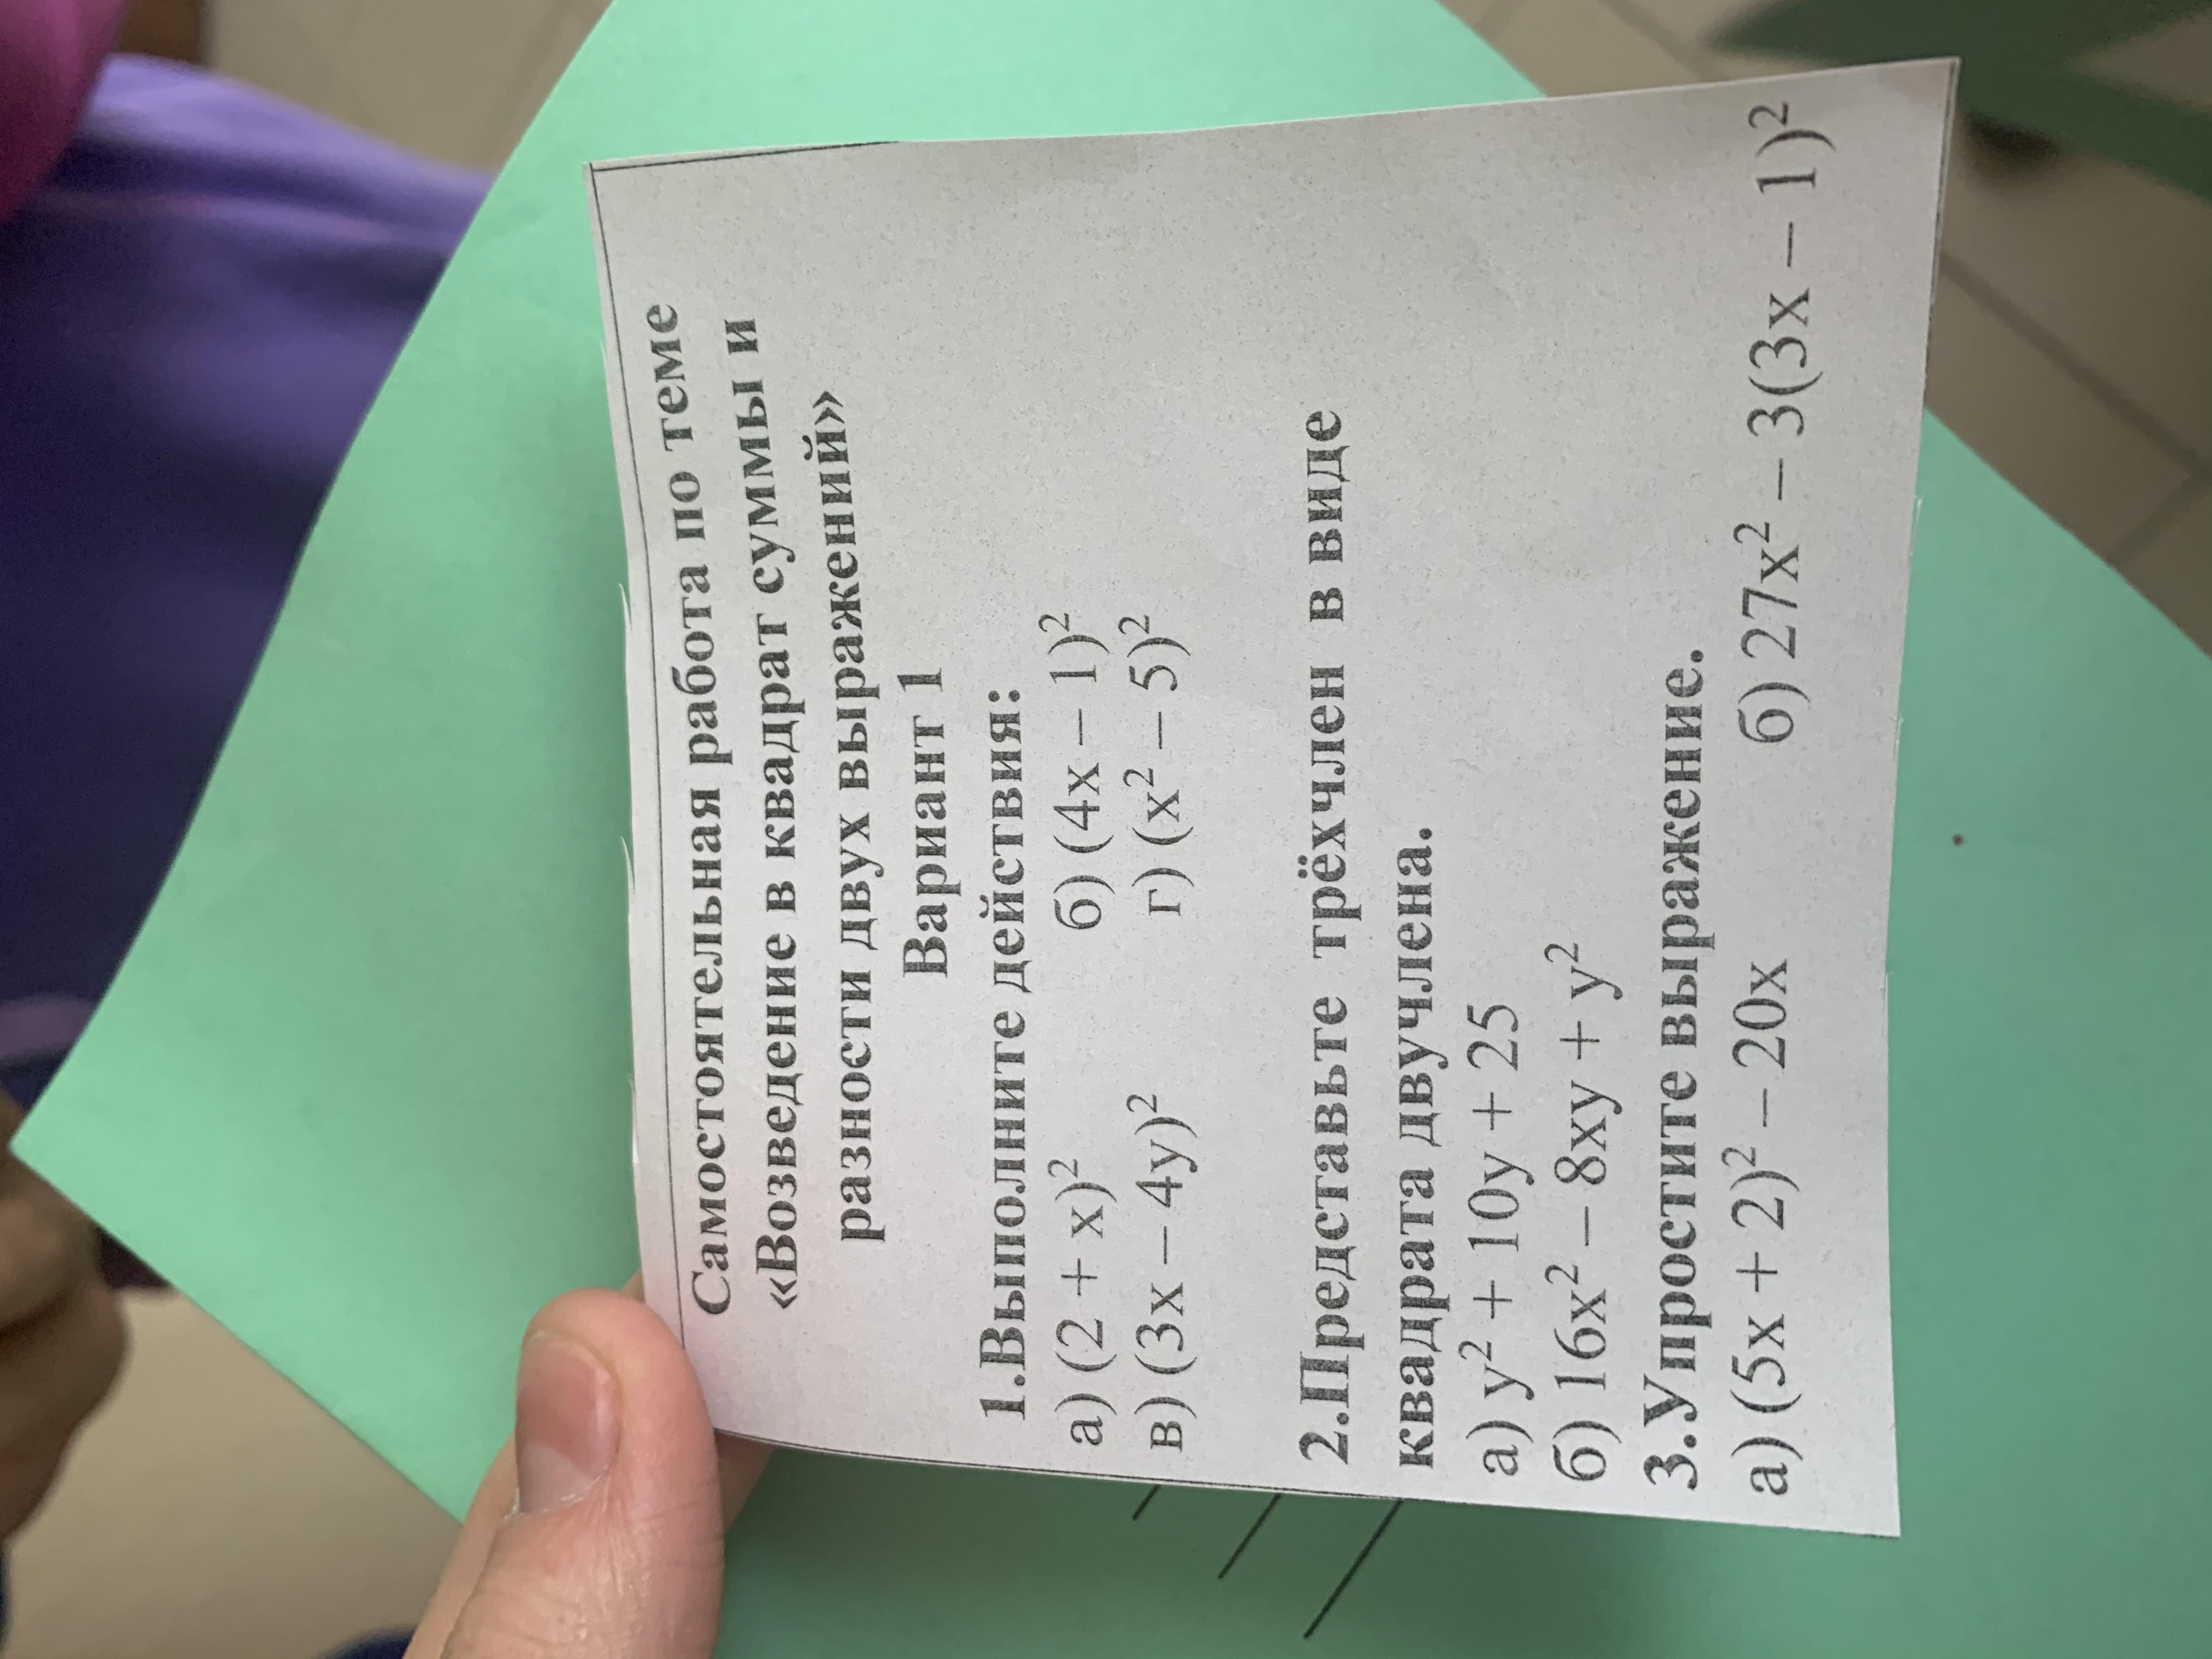 Самостоятельная работа по теме
«Возведение в квадрат суммы и
разности двух выражений»
Вариант 1
1.Выполните действия:
а) (2 + x)² б) (4x – 1)²
в) (3x – 4y)² г) (x² – 5)²
2.Представьте трёхчлен в виде
квадрата двучлена.
а) y² + 10y + 25
б) 16x² – 8xy + y²
3.Упростите выражение.
а) (5x + 2)² – 20x б) 27x² – 3(3x – 1)²